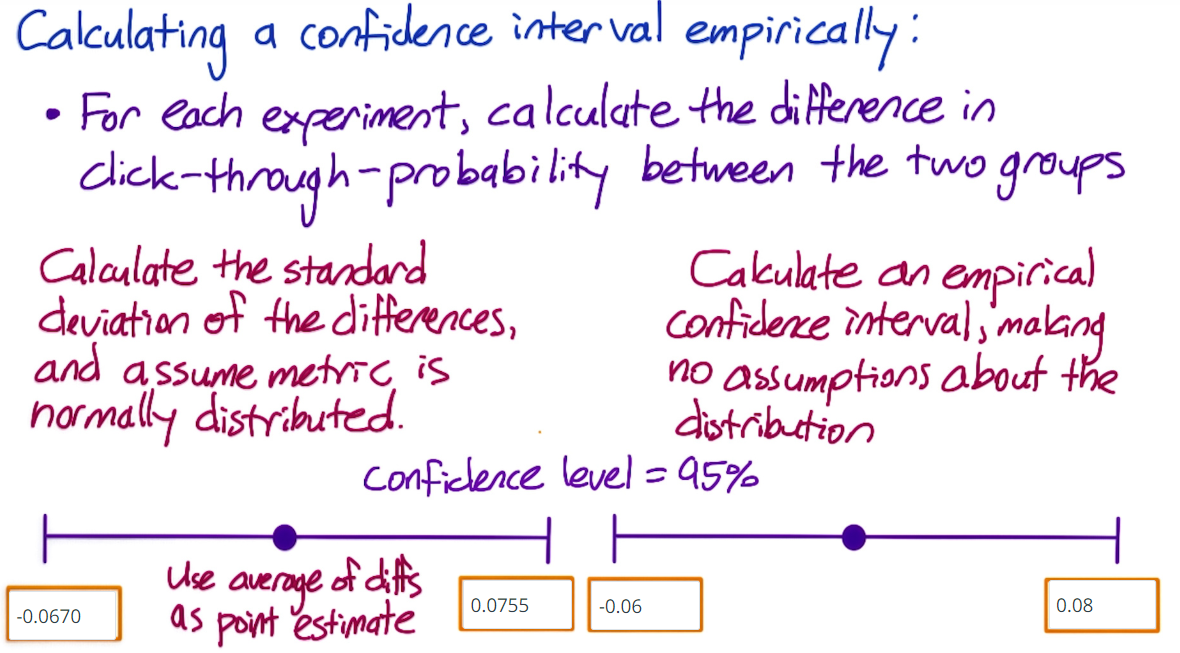 Calculating a confidence interval empirically:
• For each experiment, calculate the difference in
click-through-probability between the two groups
Calculate the standard
deviation of the differences,
and assume metric is
normally distributed.
Calculate an empirical
confidence interval, making
no assumptions about the
distribution
confidence level = 95%
Use average of diffs
as point estimate
-0.0670
0.0755
-0.06
0.08